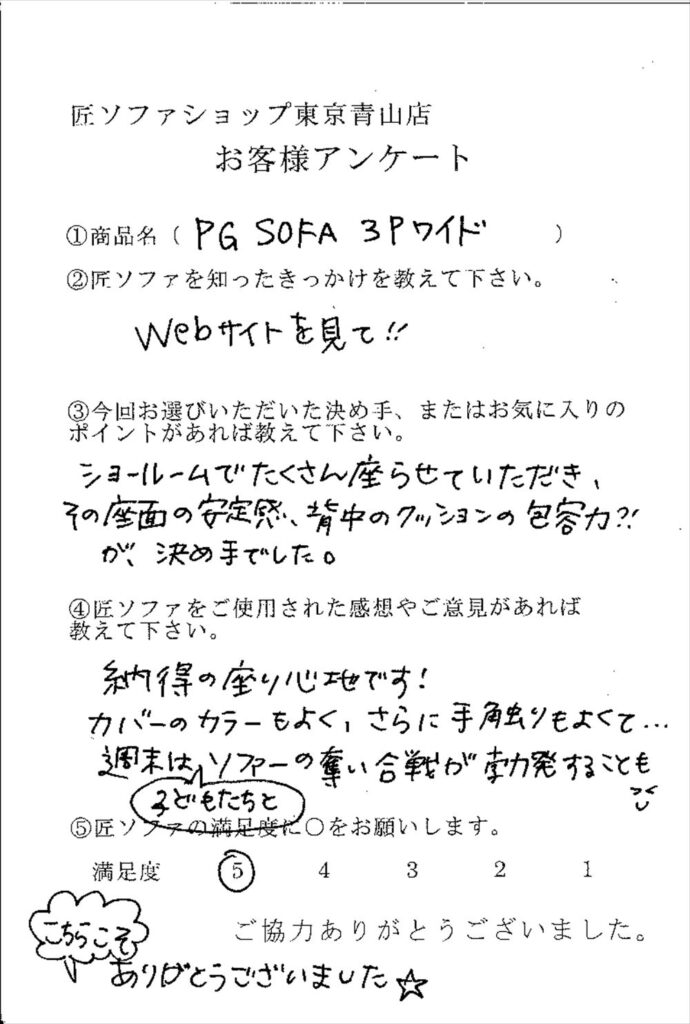 匠ソファショップ東京青山店
お客様アンケート
①商品名（ PG SOFA 3Pワイド ）
②匠ソファを知ったきっかけを教えて下さい。
Webサイトを見て!!
③今回お選びいただいた決め手、またはお気に入りの
ポイントがあれば教えて下さい。
ショールームでたくさん座らせていただき、
その座面の安定感、背中のクッションの包容力?!
が、決め手でした。
④匠ソファをご使用された感想やご意見があれば
教えて下さい。
納得の座り心地です!
カバーのカラーもよく、さらに手触りもよくて...
週末はソファーの奪い合戦が勃発することも
子どもたちと
⑤匠ソファの満足度に○をお願いします。
満足度 5 4 3 2 1
ご協力ありがとうございました。
こちらこそ
ありがとうございました☆